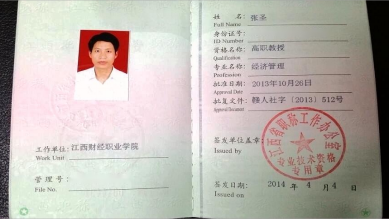 工作单位: 江西财经职业学院
Work Unit
管理号:
File No.
姓名: 张圣
Full Name
身份证号:
ID Number
资格名称: 高职教授
Qualification
专业名称: 经济管理
Profession
批准日期: 2013年10月26日
Approval Date
批复文件: 赣人社字〔2013〕512号
Approval Document
签发单位盖章:
Issued by
江西省职称工作办公室
专业技术资格
专用章
签发日期: 2014年4月4日
Issued on